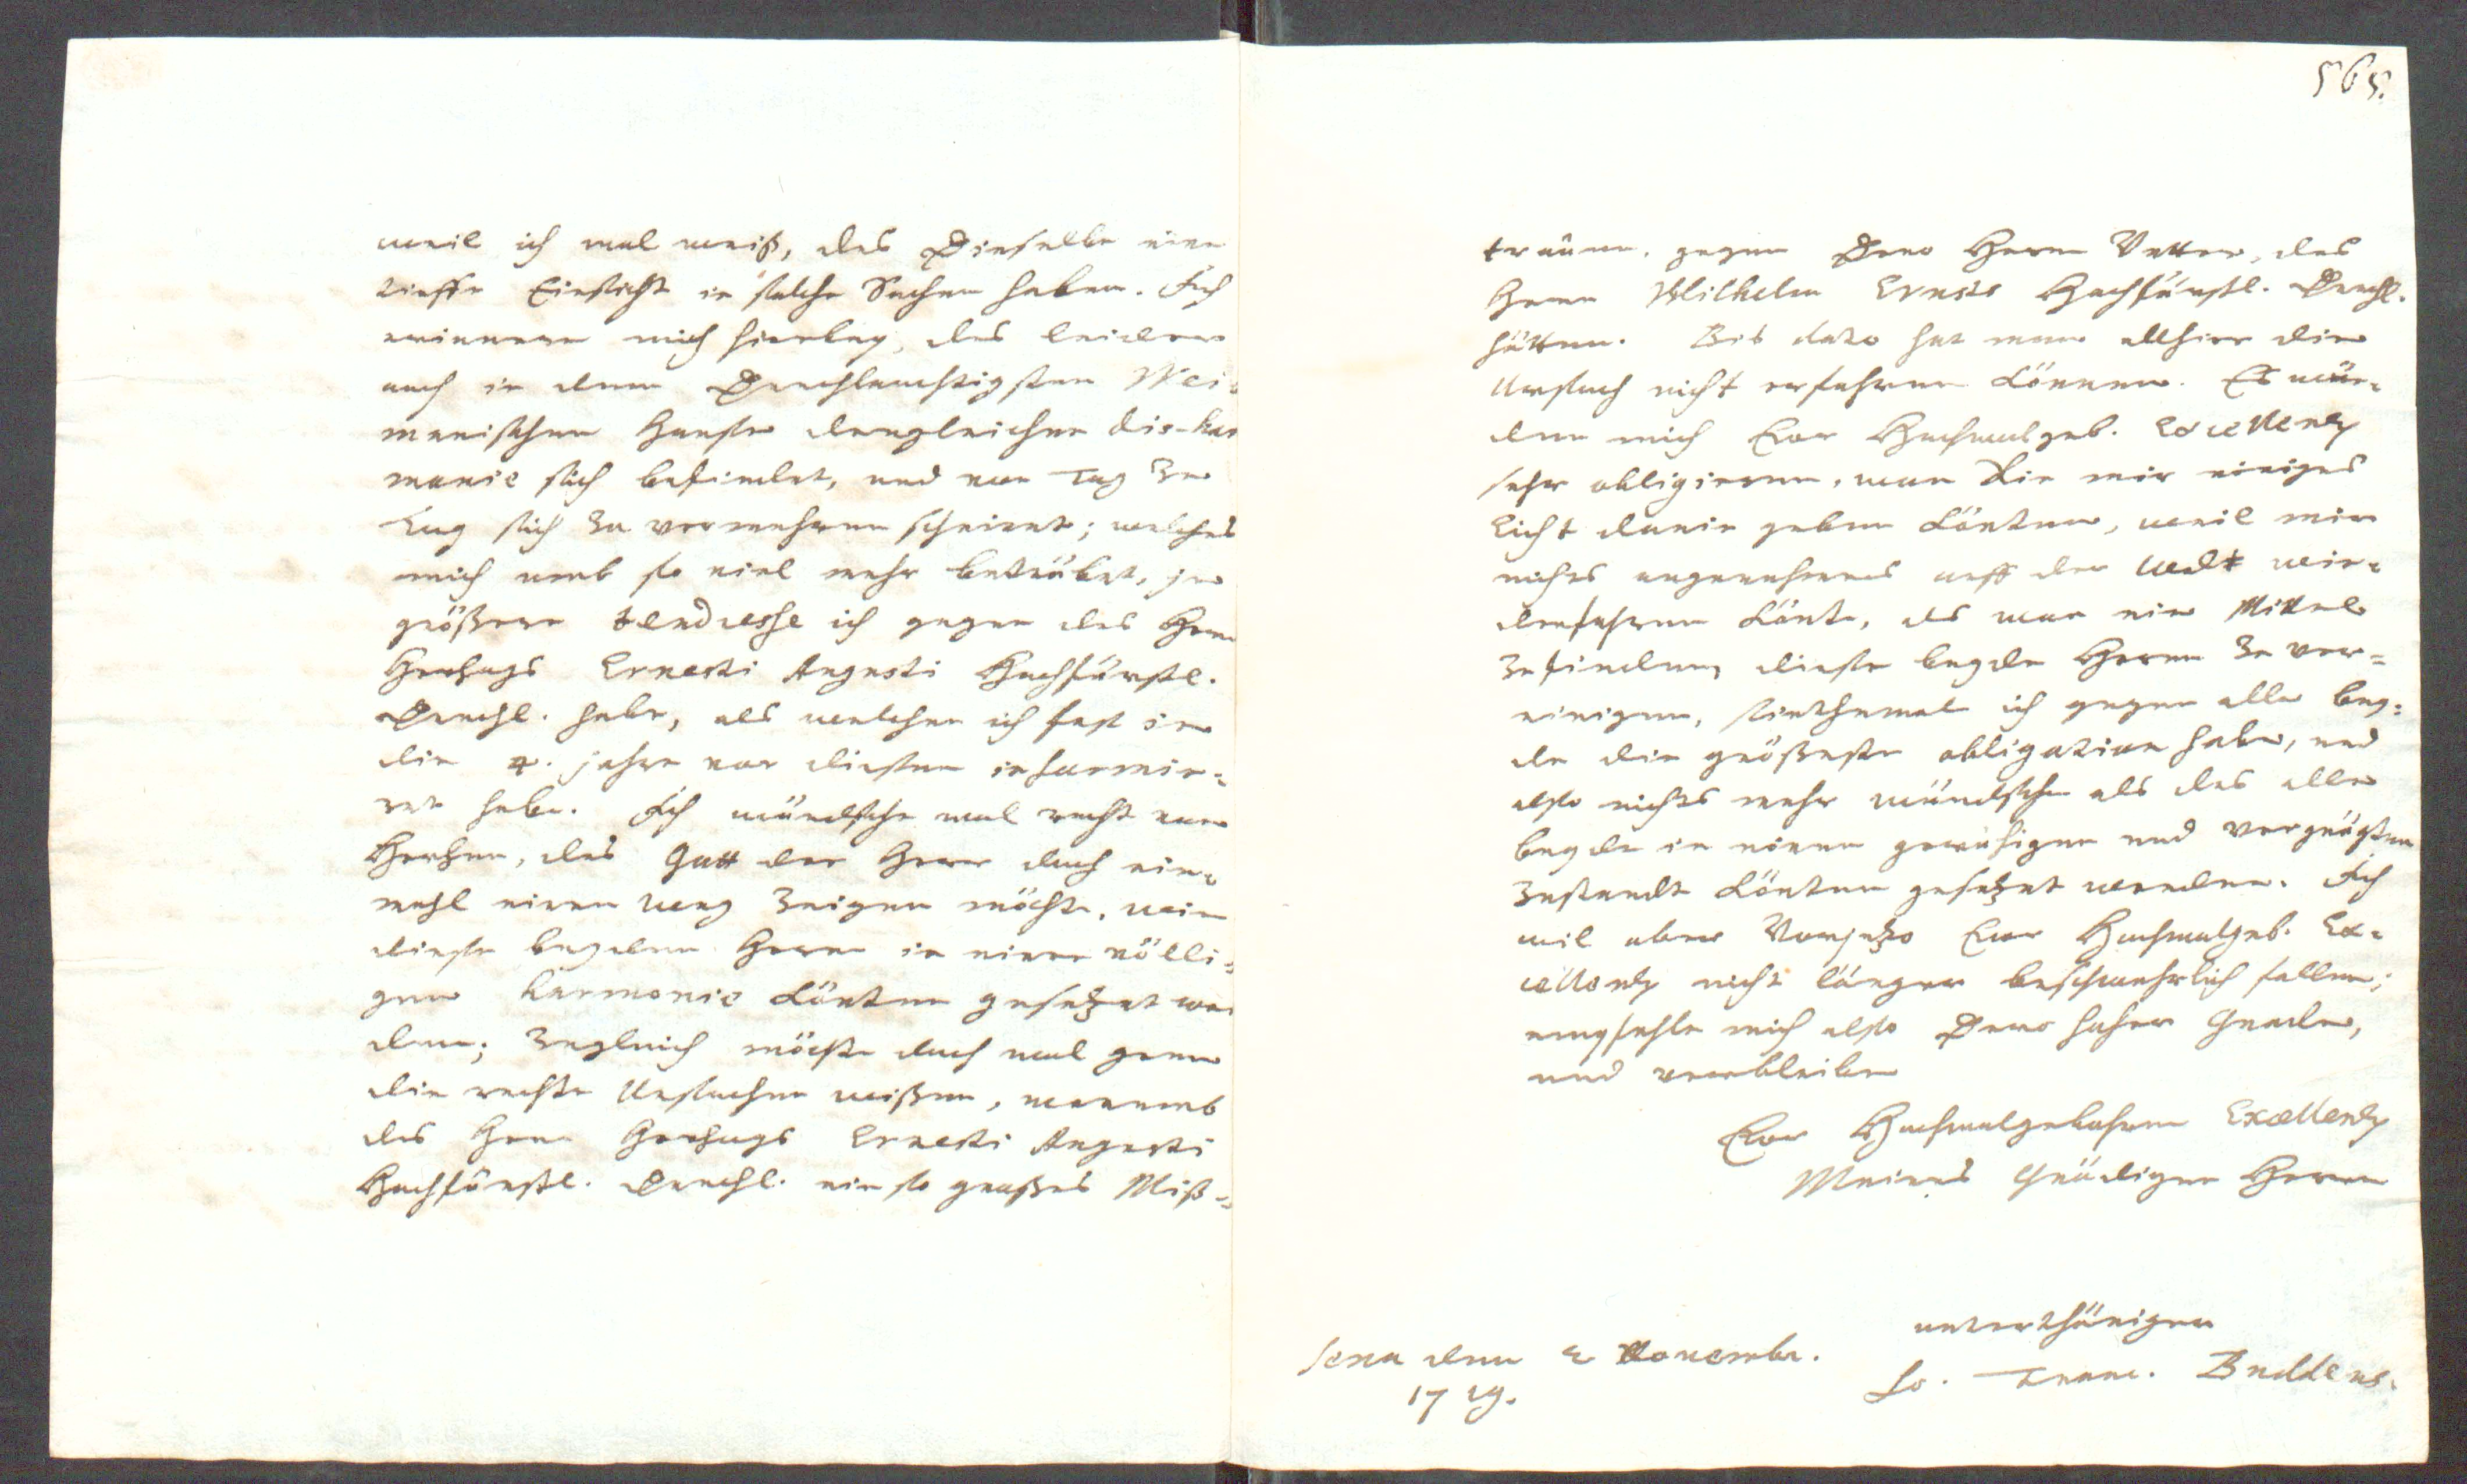 weil ich wol weiß, das Dieselbe eine
tieffe Einsicht in solche Sachen haben. Ich
erinnere mich hierbey, das leider
auch in dem Durchlauchtigsten Wei-
marischen Hause dergleichen dis-har
monie sich befindet, und von Tag zu
Tag sich zu vermehren scheinet; welches
mich umb so viel mehr betrübet, je
größere tendresse ich gegen des Herrn
Herzogs Ernesti Augusti Hochfürstl.
Durchl. habe, als welchen ich fast in
die 4. jahre vor diesen informi-
ret habe. Ich wündsche wol recht von
Herzen, das Gott der Herr doch ein-
mahl einen weg zeigen möchte, wie
diese beyden Herrn in eine völli-
gen harmonie könten gesezet wer
den; zugleich möchte doch wol gern
die rechte Ursachen wißen, warumb
des Herrn Herzogs Ernesti Augusti
Hochfürstl. Durchl. ein so großes Miß-
565.
trauen, gegen Dero Herrn Vetter, des
Herrn Wilhelm Ernsts Hochfürstl. Durchl.
hätten. Bis dato hat man allhier die
Ursach nicht erfahren können. Es wür-
den mich Ewr Hochwolgeb. Excellenz
sehr obligieren, wan Sie mir einiges
Licht darin geben könten, weil mir
nichts angenehmers auff der Welt wie-
derfahren könte, als wan ein Mittel
zufinden, diese beyde Herrn zu ver-
einigen, sinthemal ich gegen alle bey-
de die größeste obligation habe, und
also nichts mehr wündsche als das alle
beyde in einen geruhigen und vergnügten
Zustandt könten gesezet werden. Ich
wil aber Vorjezo Ewr Hochwolgeb. Ex-
cellenz nicht länger beschwehrlich fallen;
empfehle mich also Dero hoher Gnade,
und verbleibe
Ewr Hochwolgebohrnen Excellenz
Meines Gnädigen Herrn
unterthäniger
Jo. Franc. Buddeus.
Jena den 2 Novembr.
1719.